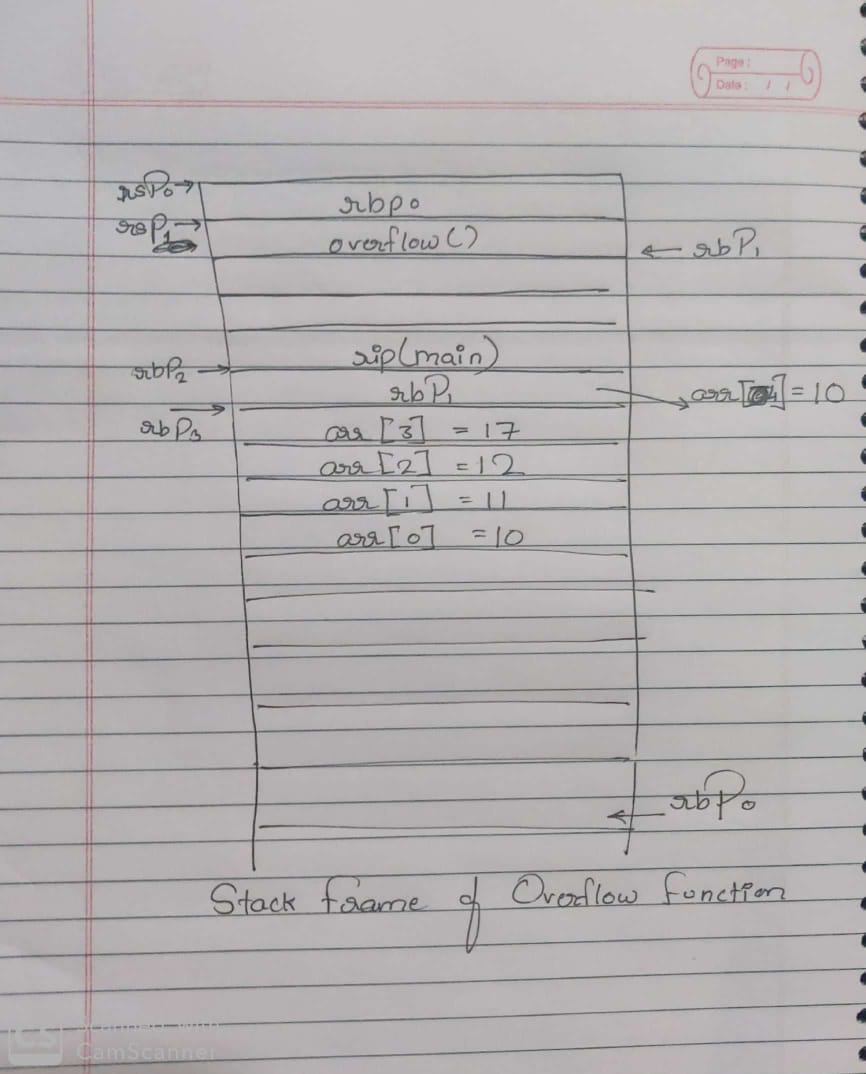 Page :
Date : / /
rsp₀ →
rbp₀
rsp₁ →
overflow()
← rbp₁
rip(main)
rbp₂ →
rbp₁
arr[4] = 10
rbp₃
arr [3] = 17
arr [2] = 12
arr [1] = 11
arr [0] = 10
← rbp₀
Stack frame of Overflow function
CS Scanned with
CamScanner